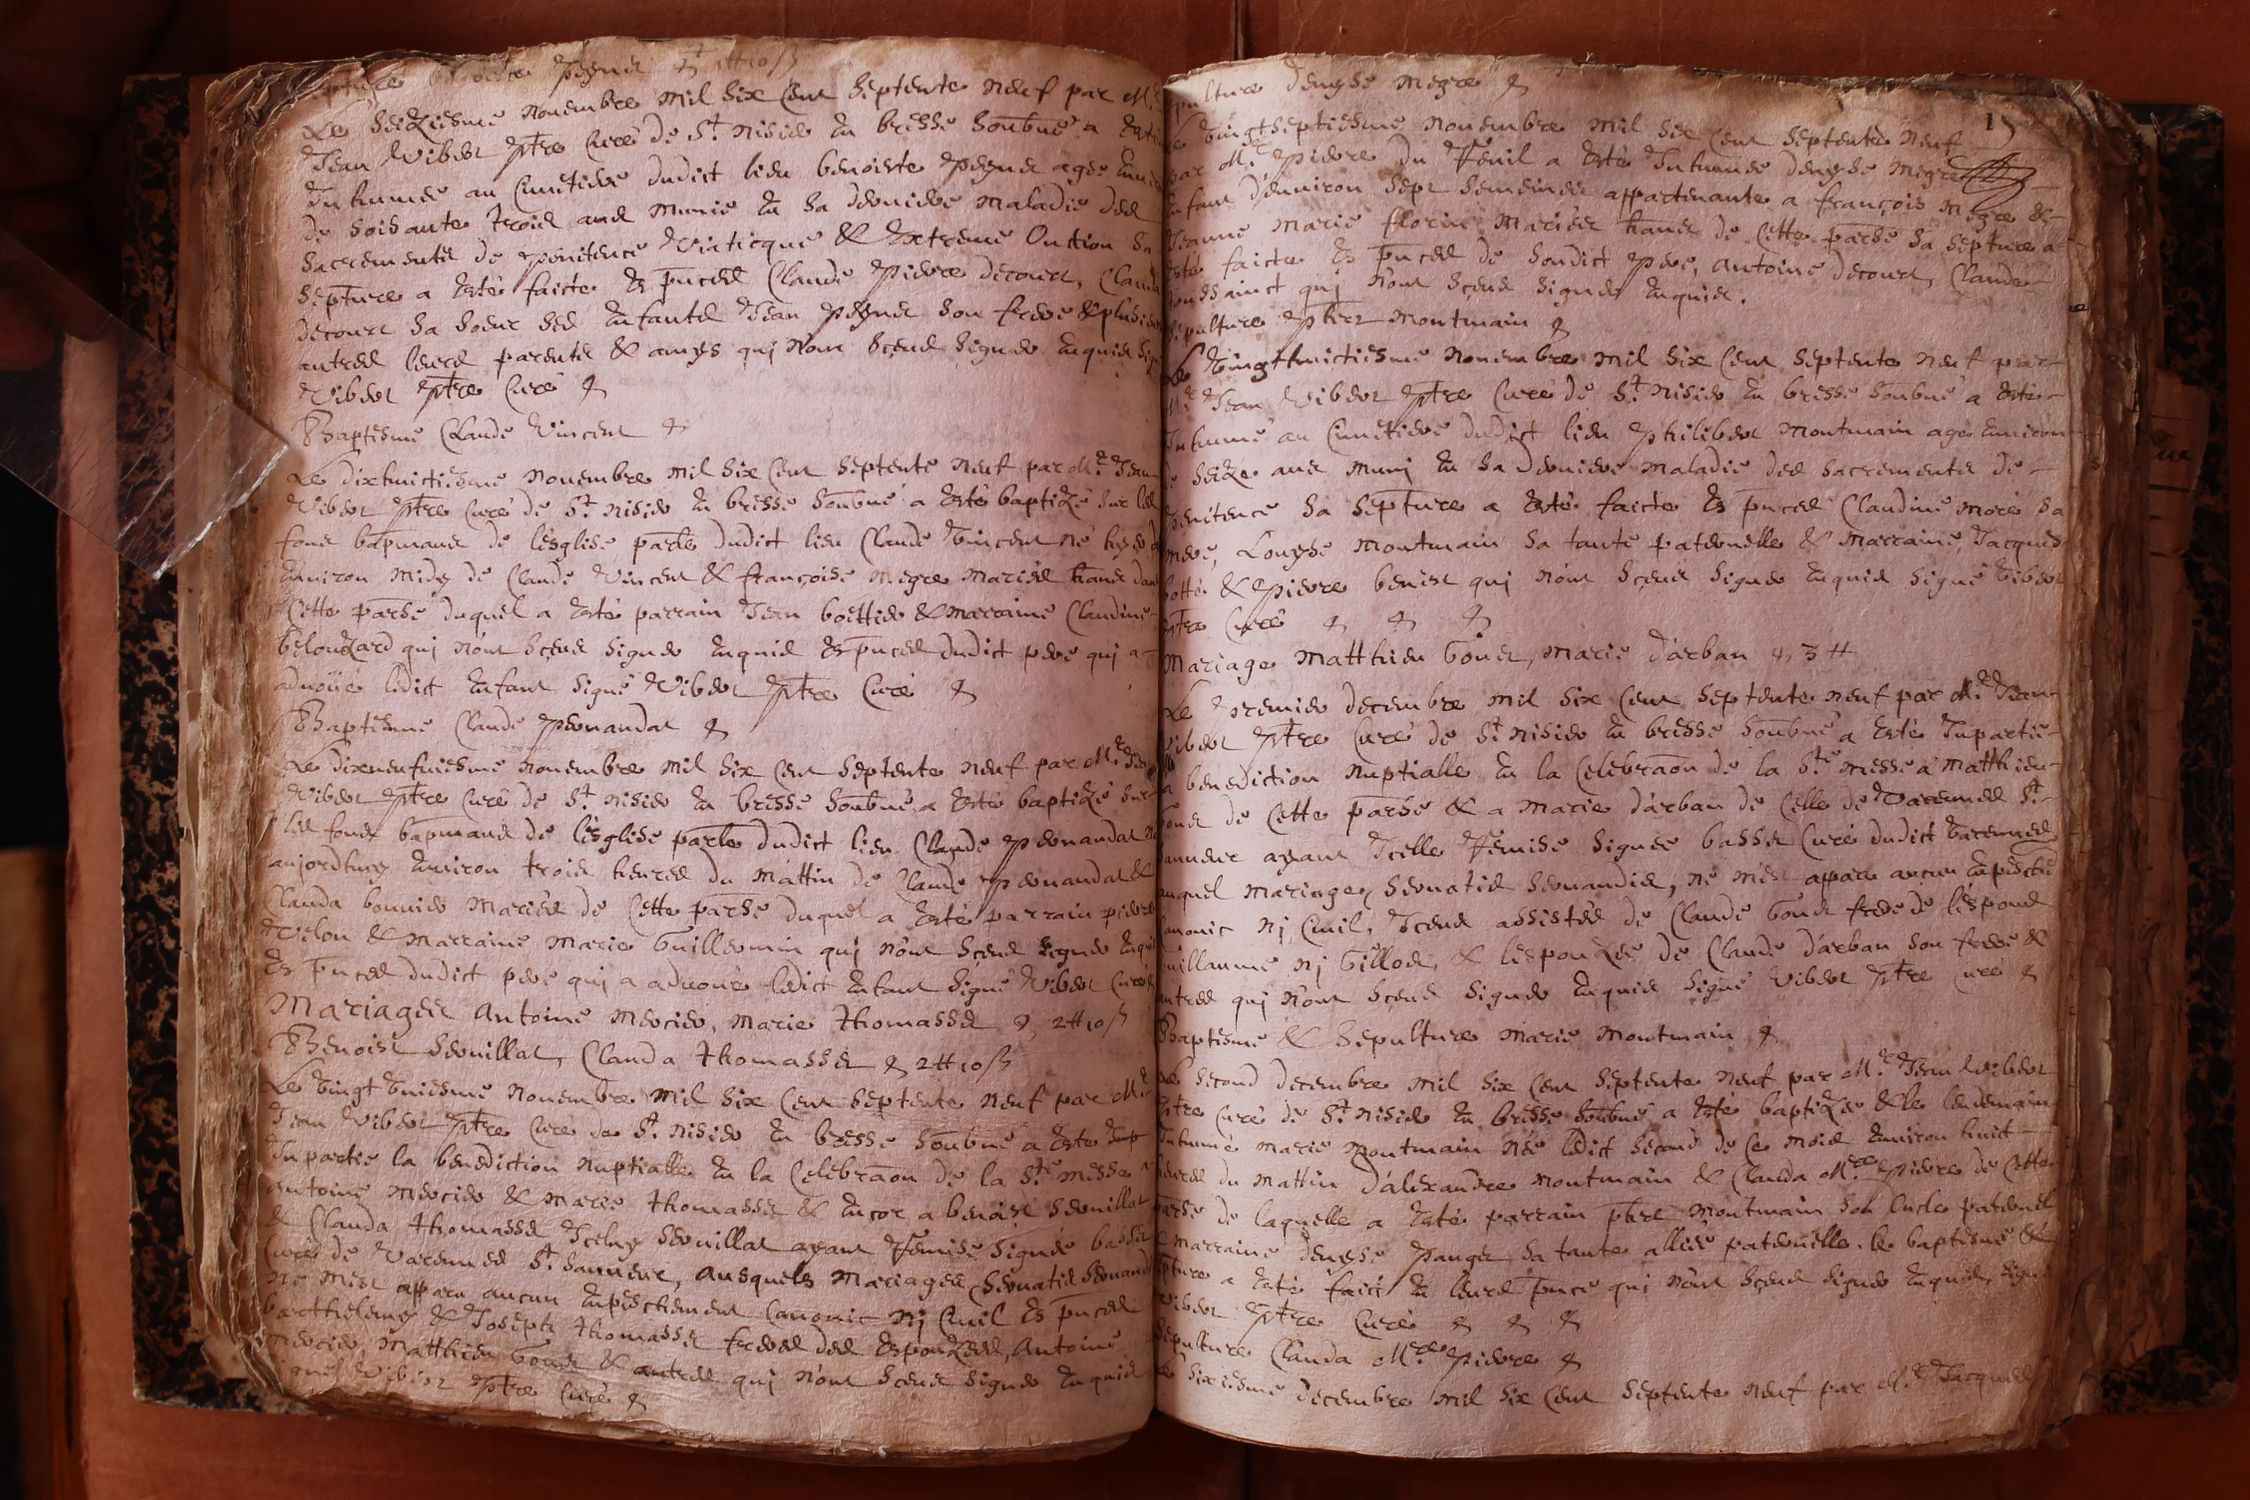 Septure benoiste pegnet 1tt10s
Le seiziesme novembre mil six cent septente neuf par Mre
Jean Vibert ptre curé de St nisier en bresse soubné a esté
Inhumée au cimetiere dudict lieu benoiste pegnet agée environ
de soisante trois ans munie en sa derniere maladie des
sacrements de penitence viaticque & Extreme Onction sa
septure a esté faicte es pnces Claude pierre decourt, Clauda
decourt sa soeur ses enfants Jean pegnet son frere & plusieurs
autres leurs parents & amys qui n'ont sceus signer enquis signé
Vibert ptre curé
Baptesme Claude Vincent
Le dixhuictiesme novembre mil six cent septente neuf par Mre Jean
Vibert ptre curé de St nisier en bresse soubné a esté baptizé sur les
fons bapmaus de l'esglise parle dudict lieu Claude Vincent né hyer à
environ midy de Claude Vincent & françoise megre mariés hans dans
Cette parse duquel a esté parrain Jean boettier & marraine Claudine
belouzard qui n'ont sceus signer enquis es pnces dudict pere qui a
advoüé ledict enfant signé Vibert ptre curé
Baptesme Claude pernandat
Le dixneufviesme novembre mil six cent septente neuf par Mre Jean
Vibert ptre curé de St nisier en bresse soubné a esté baptizé sur
les fons bapmaus de l'esglise parle dudict lieu Claude pernandat né
aujordhuy environ trois heures du mattin de Claude pernandat &
Clauda bonnier mariés de Cette parse duquel a esté parrain pierre
Velon & marraine marie Guillermin qui n'ont sceus signer enquis
es pnces dudict pere qui a advoüé ledict enfant signé Vibert curé
Mariages Antoine mercier, marie thomasset 2tt10s
Benoist servillat, Clauda thomasset 2tt10s
Le vingt uniesme novembre mil six cent septente neuf par Mre
Jean Vibert ptre curé de St nisier en bresse soubné a esté
Inpartie la benediction nuptialle en la celebraon de la Ste messe a
antoine mercier & marie thomasset & encor a benoist servillat
& Clauda thomasset Iceluy servillat ayant remise signée basset
curé de Varennes St sauveur, ausquels mariages servatis servandis
ne m'est apparu aucun enpeschement canonic ni civil es pnces
barthelemy & Joseph thomasset freres des espouzees, antoine
mercier, matthieu Gonet & autres qui n'ont sceus signer enquis
signé Vibert ptre curé
Sepulture denyse megre
15
Le vingt septiesme novembre mil six cent septente neuf
par Mre pierre du Feuil a esté Inhumée denyse megre
enfant d'environ sept semeines appartenante a françois megre &
Jeanne marie florin mariés hans de Cette parse sa septure a
esté faicte es pnces de soudict pere, antoine decourt, Claude
toussainct qui n'ont sceus signer enquis.
Sepulture phert montmain
Le vingthuictiesme novembre mil six cent septente neuf par
Mre Jean Vibert ptre curé de St nisier en bresse soubné a esté
Inhumé au cimetiere dudict lieu philibert montmain agé environ
de seize ans muni en sa derniere maladie des sacrements de
penitence sa septure a esté faicte es pnces Claudine moré sa
mere, Louyse montmain sa tante paternelle & marraine, Jacques
botté & pierre benist qui n'ont sceus signer enquis signé Vibert
ptre curé
Mariage matthieu Gonet, marie d'arban 3tt
Le premier decembre mil six cent septente neuf par Mre Jean
Vibert ptre curé de St nisier en bresse soubné a esté Inpartie
la benediction nuptialle en la celebraon de la Ste messe a matthieu
Gonet de Cette parse & a marie d'arban de Celle de Varennes St
sauveur ayant Icelle remise signée basset curé dudict Varennes
auquel mariage servatis servandis, ne m'est apparu aucun enpeschet
canonic ni civil, Iceux assistés de Claude Gonet frere de l'espoux
Guillaume ni Gillod, & l'espouzée de Claude d'arban son frere &
autres qui n'ont sceus signer enquis signé Vibert ptre curé
Baptesme & sepulture marie montmain
Le second decembre mil six cent septente neuf par Mre Jean Vibert
ptre curé de St nisier en bresse soubné a esté baptizée & le lendemain
Inhumé marie montmain née ledict second de ce mois environ huict
heures du mattin d'alexandre montmain & Clauda Mrce pierre de Cette
parse de laquelle a esté parrain phert montmain son oncle paternel
& marraine denyse pauget sa tante alliée paternelle. le baptesme &
septure a esté faict en leurs pnce qui n'ont sceus signer enquis, signé
Vibert ptre curé
Sepulture Clauda Mrce pierre
Le sixiesme decembre mil six cent septente neuf par Mre Jacques